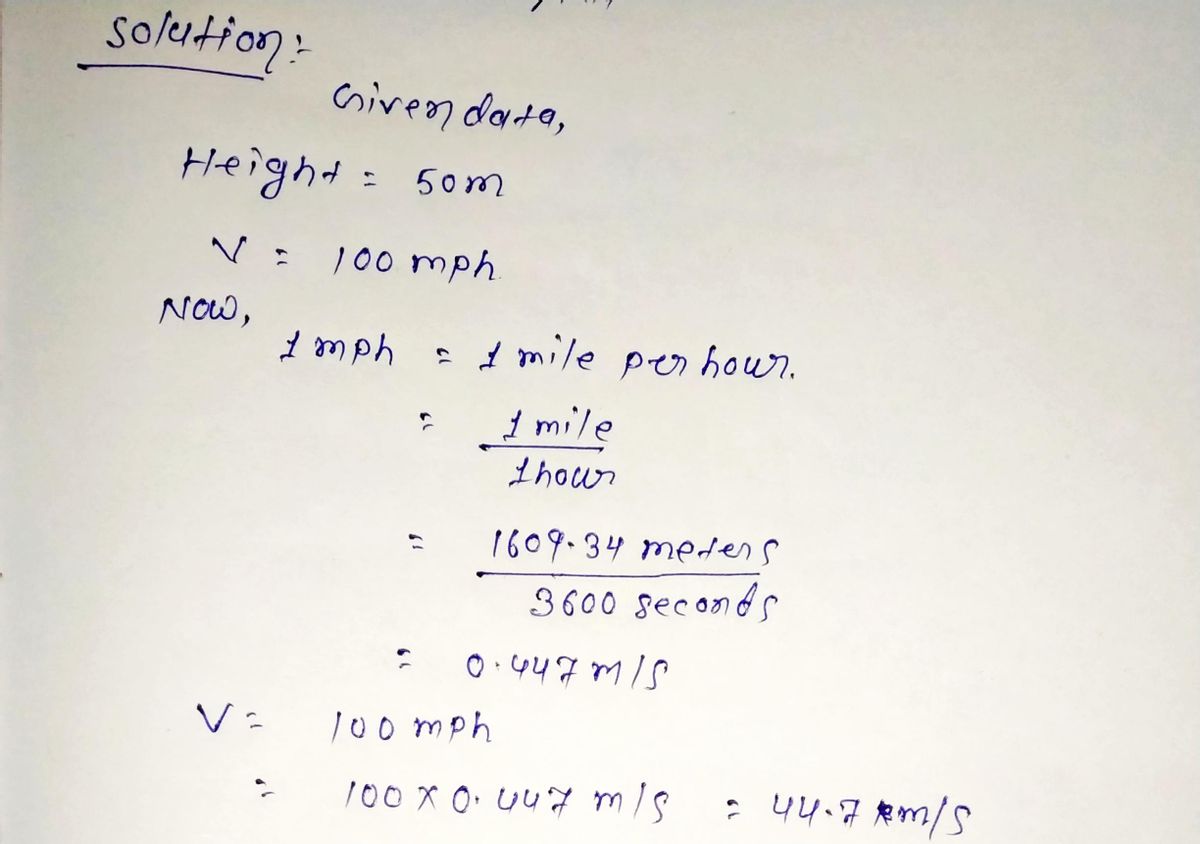 Solution:-
Given data,
Height = 50m
V = 100 mph
Now,
1 mph = 1 mile per hour.
= 1 mile
1 hour
= 1609.34 meters
3600 seconds
= 0.447 m/s
V = 100 mph
= 100 x 0.447 m/s = 44.7 m/s